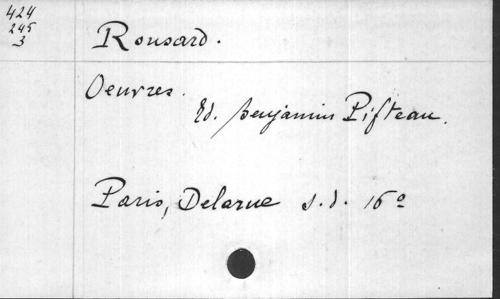 424
245
3
Ronsard.
Oeuvres.
Ed. Benjamin Pifteau.
Paris, Delarue s.d. 16º